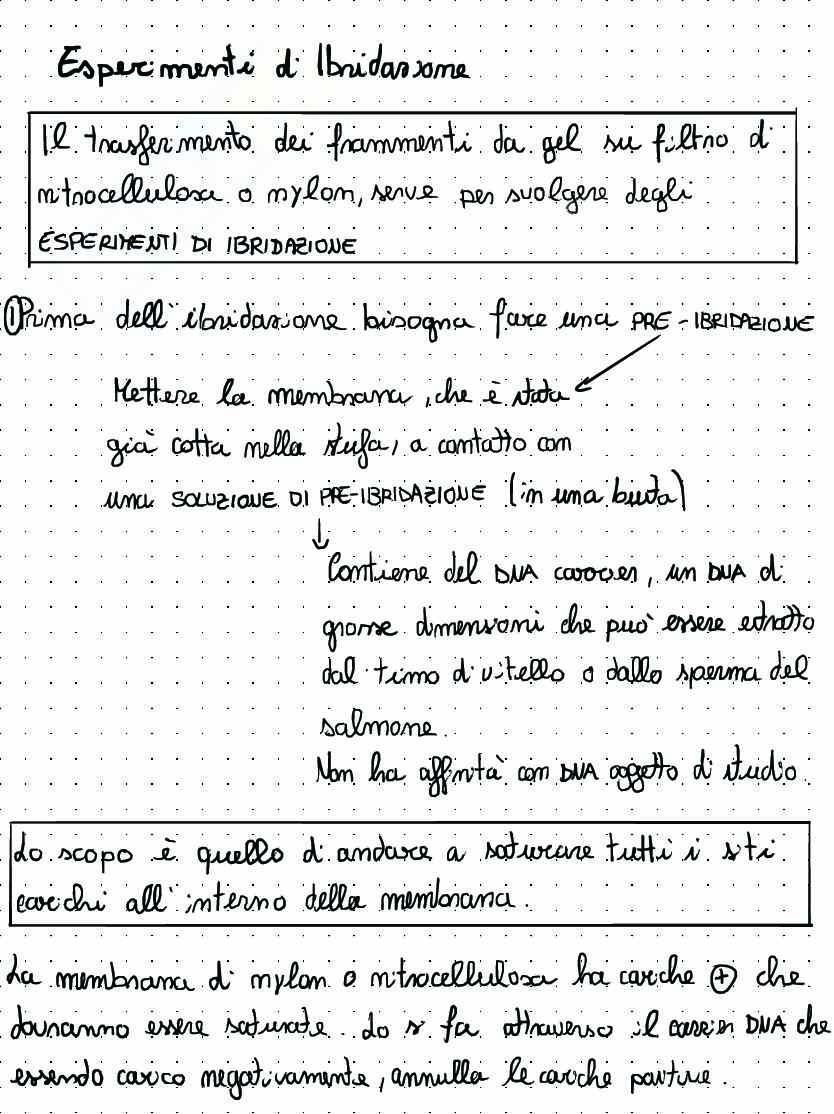 Esperimenti di Ibridazione
Il trasferimento dei frammenti da gel su filtro di
nitrocellulosa o nylon, serve per svolgere degli
ESPERIMENTI DI IBRIDAZIONE
① Prima dell'ibridazione bisogna fare una PRE-IBRIDAZIONE
Mettere la membrana, che è stata
già cotta nella stufa, a contatto con
una SOLUZIONE DI PRE-IBRIDAZIONE (in una busta)
Contiene del DNA carrier, un DNA di
grosse dimensioni che può essere estratto
dal timo di vitello o dallo sperma del
salmone.
Non ha affinità con DNA oggetto di studio
Lo scopo è quello di andare a saturare tutti i siti
carichi all'interno della membrana.
La membrana di nylon o nitrocellulosa ha cariche ⊕ che
dovranno essere saturate. Lo si fa attraverso il carrier DNA che
essendo carico negativamente, annulla le cariche positive.